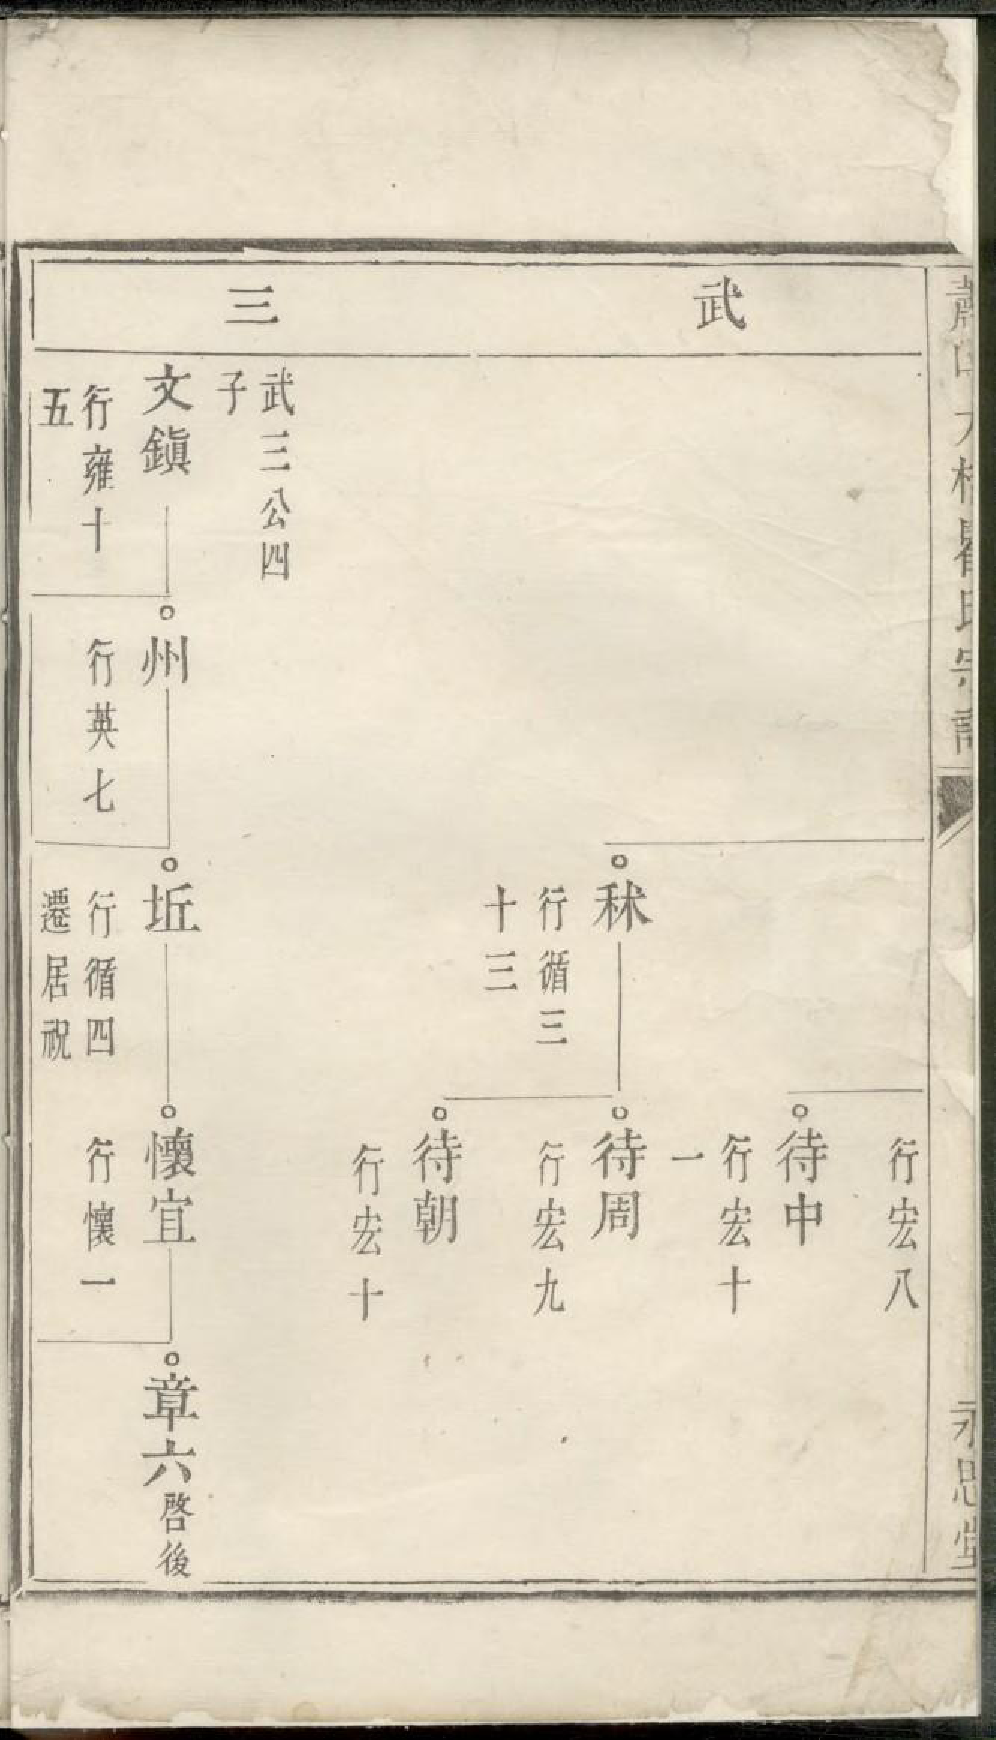 武三
行宏八
待中
行宏十
一
秫
行循三
十三
待周
行宏九
待朝
行宏十
武三公四
子
文鎭
行雍十
五
州
行英七
坵
行循四
遷居祝
懷宜
行懷一
章六啓後